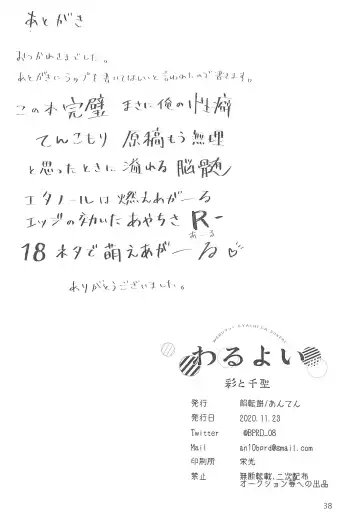 あとがき
おつかれさまでした。
あとがきにラップを書いてほしいと言われたので書きます。
この本完璧 まさに俺の性癖
てんこもり 原稿もう無理
と思ったときに溢れる脳髄
エタノールは燃えあがーる
エッジの効いたあやちさR-
あーる
18ネタで萌えあがーる♡
ありがとうございました。
わるよい
彩と千聖
発行 餡転餅/あんてん
発行日 2020.11.23
Twitter @BPRD_08
Mail an10bprd@gmail.com
印刷所 栄光
禁止 無断転載、二次配布
オークション等への出品
38